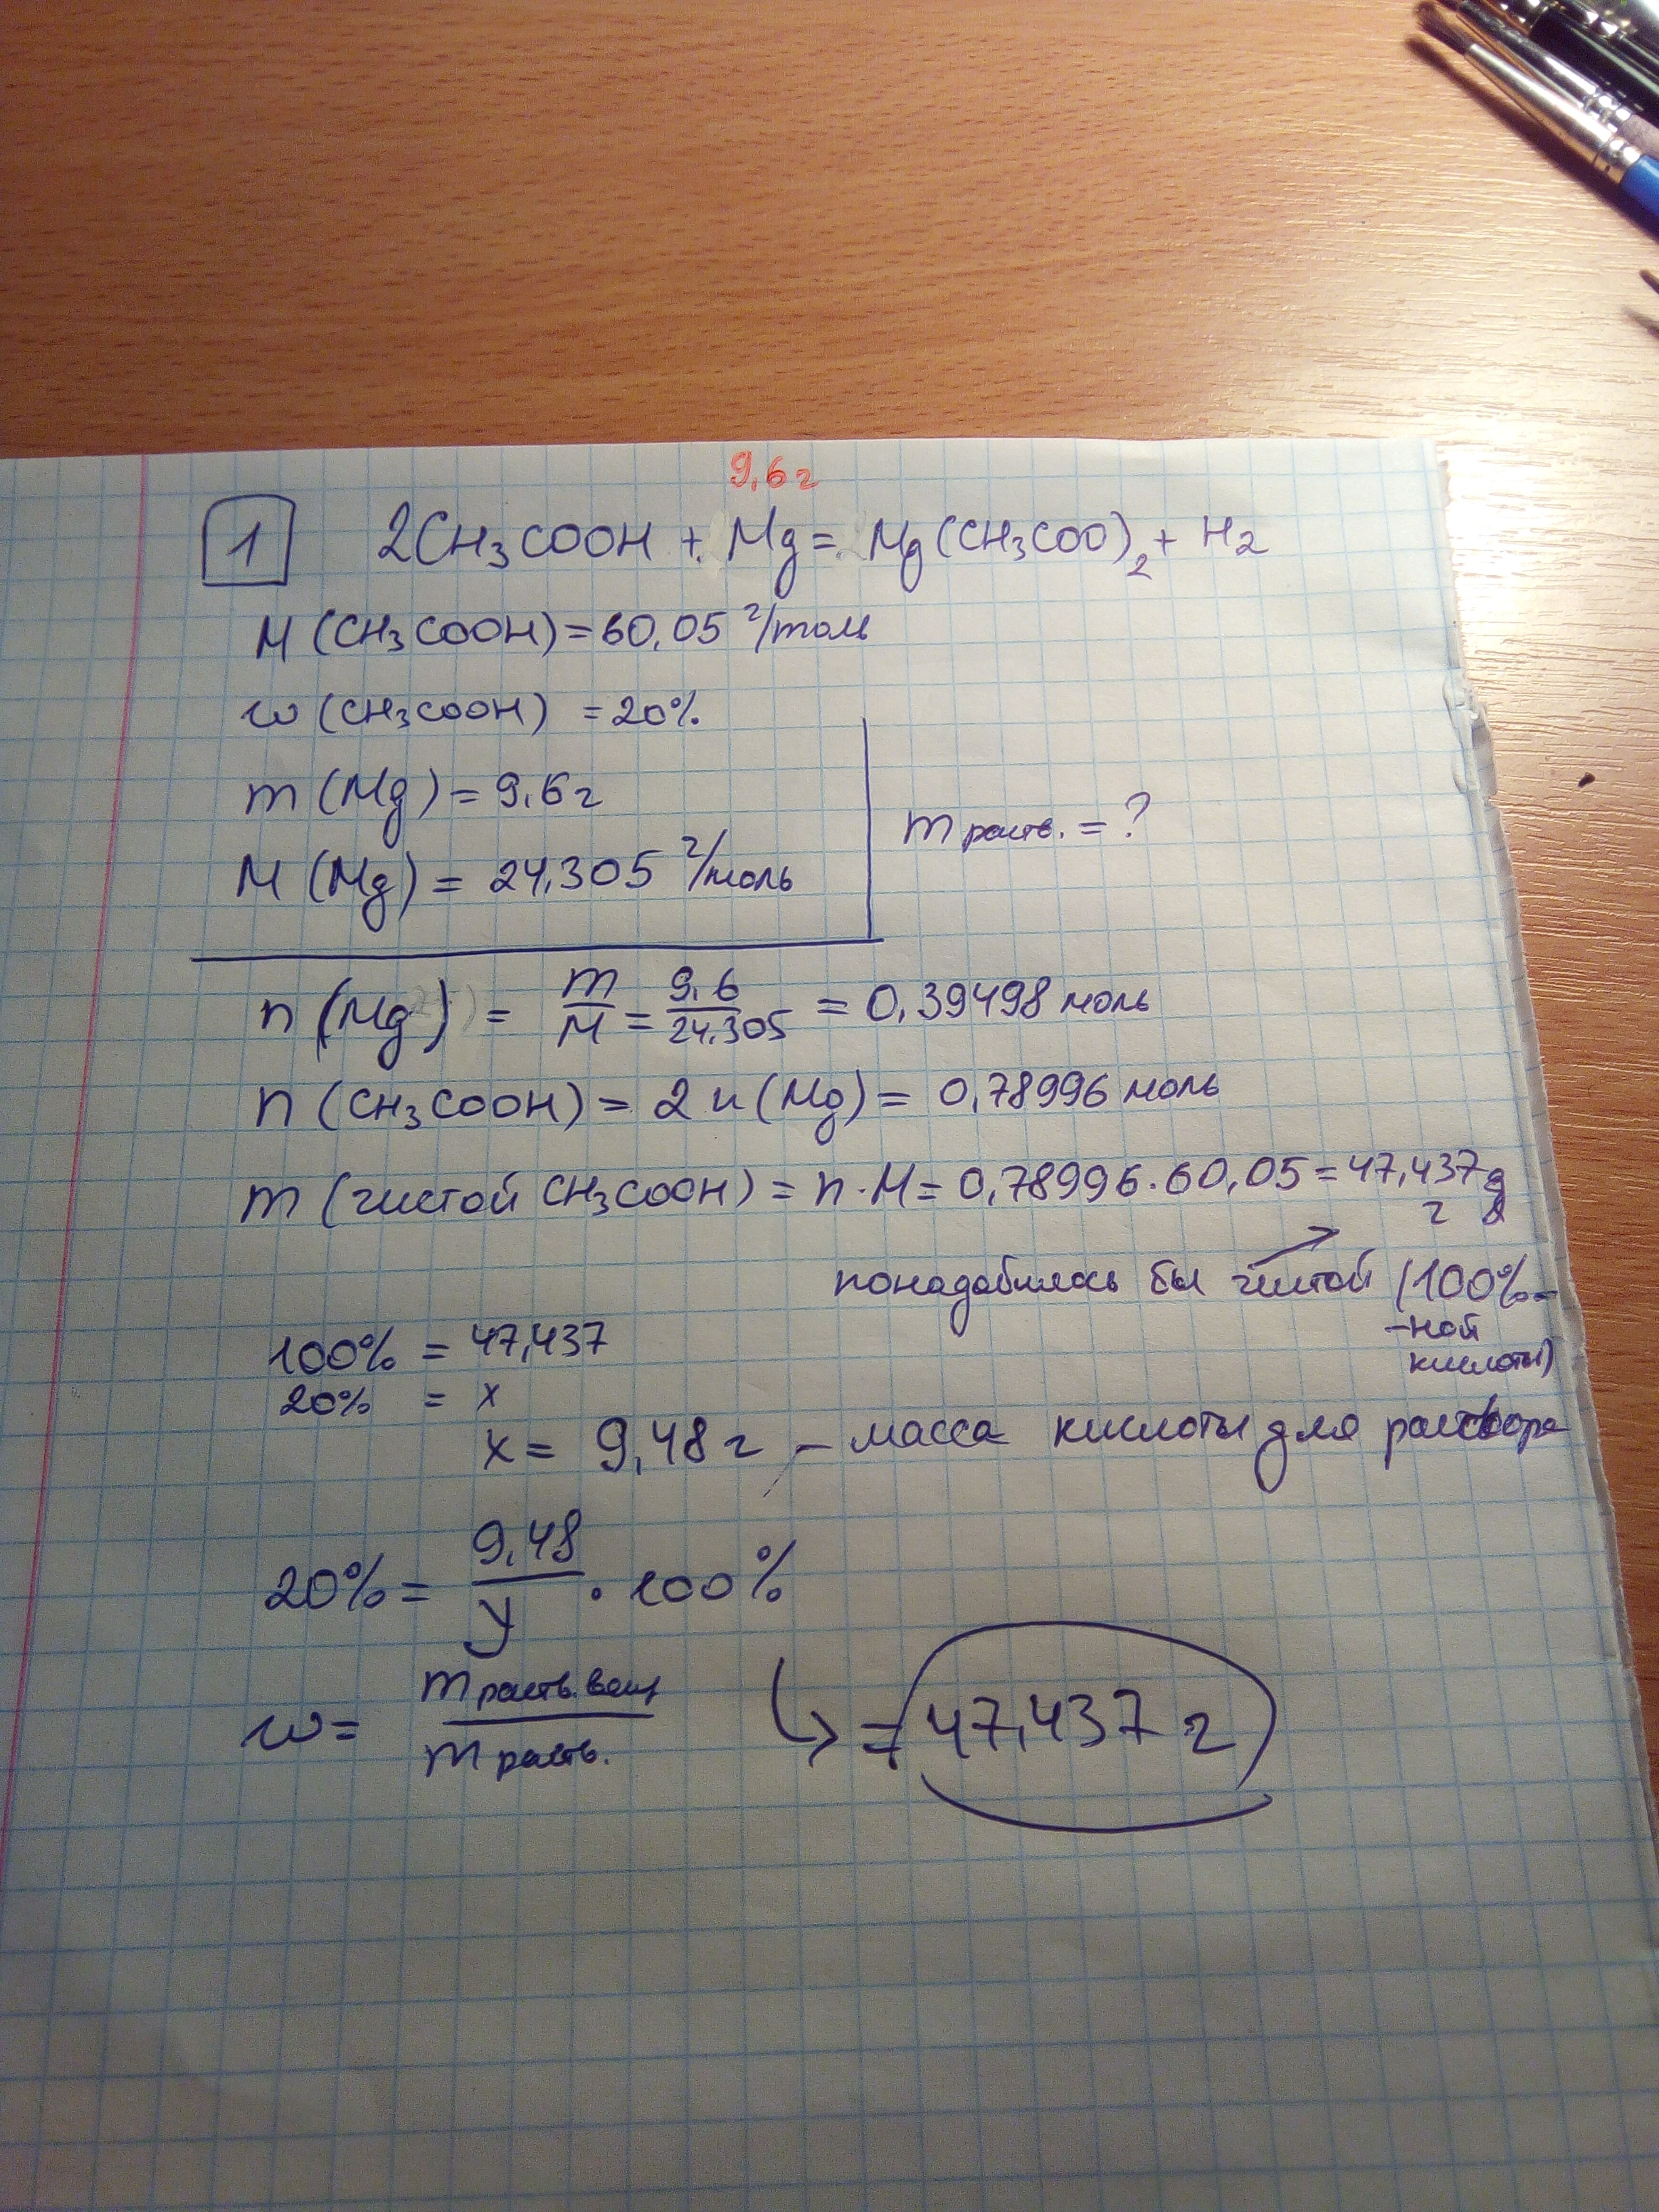 9,6 г
1 2CH₃COOH + Mg = Mg(CH₃COO)₂ + H₂
M (CH₃COOH) = 60,05 г/моль
w (CH₃COOH) = 20%
m (Mg) = 9,6 г
M (Mg) = 24,305 г/моль
m раств. = ?
n (Mg) = m/M = 9,6/24,305 = 0,39498 моль
n (CH₃COOH) = 2 n (Mg) = 0,78996 моль
m (чистой CH₃COOH) = n · M = 0,78996 · 60,05 = 47,437
г
понадобилось бы чистой (100%-
-ной
кислоты)
100% = 47,437
20% = x
x = 9,48 г – масса кислоты для раствора
20% = 9,48/y · 100%
w = m раств. вещ/m раств.
= 47,437 г